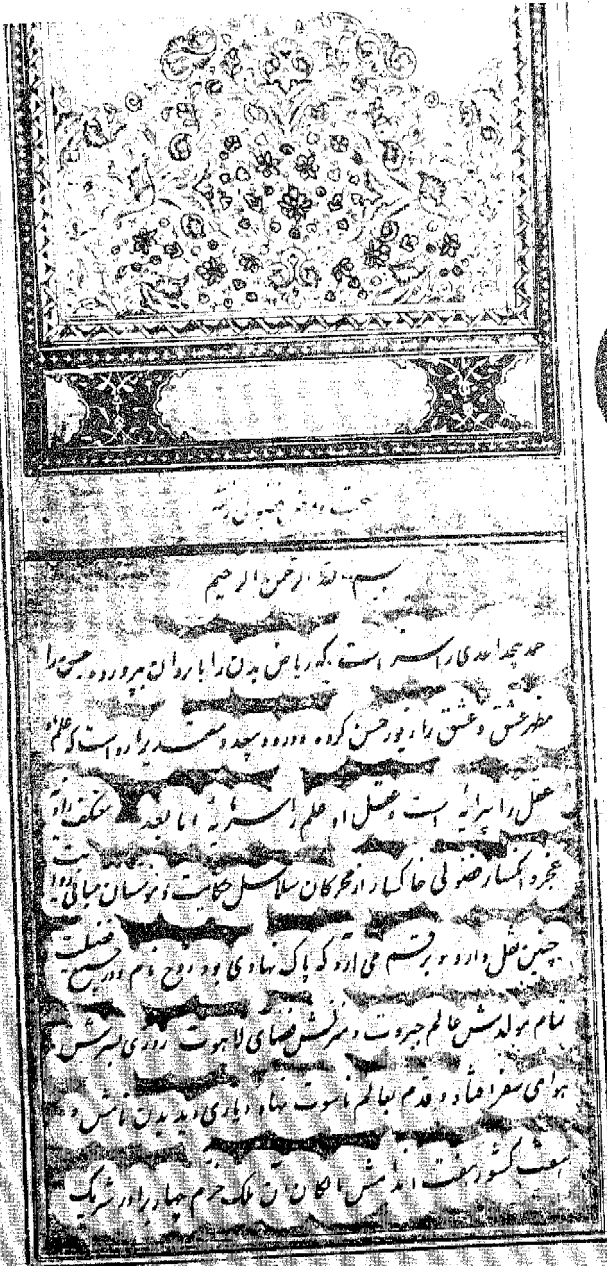 صحت و مرض فضولی
بسم الله الرحمن الرحیم
حمد بیحد احدی را سزاست که ریاض بدن را با روان بپرورده و حسن را
مظهر عشق و عشق را زیور حسن کرده و درود بیعد را رواست که علم او
عقل را پیرایه است و عقل او علم را سرمایه اما بعد معتکف زاویه
عجز و انکسار فضولی خاکسار از محرکان سلاسل حکایت و مبانی روایت
چنین نقل دارد و برقم می آرد که پاک نهادی بود روح نام و در فضیلت
تمام مولدش عالم جبروت و منزلش فضای لاهوت روزی بسرش
هوای سفر افتاد و قدم بعالم ناسوت نهاد دیاری دید بدن نامش و
هفت کشور هفت اندامش ارکان آن ملک خرم چهار برادر شریک